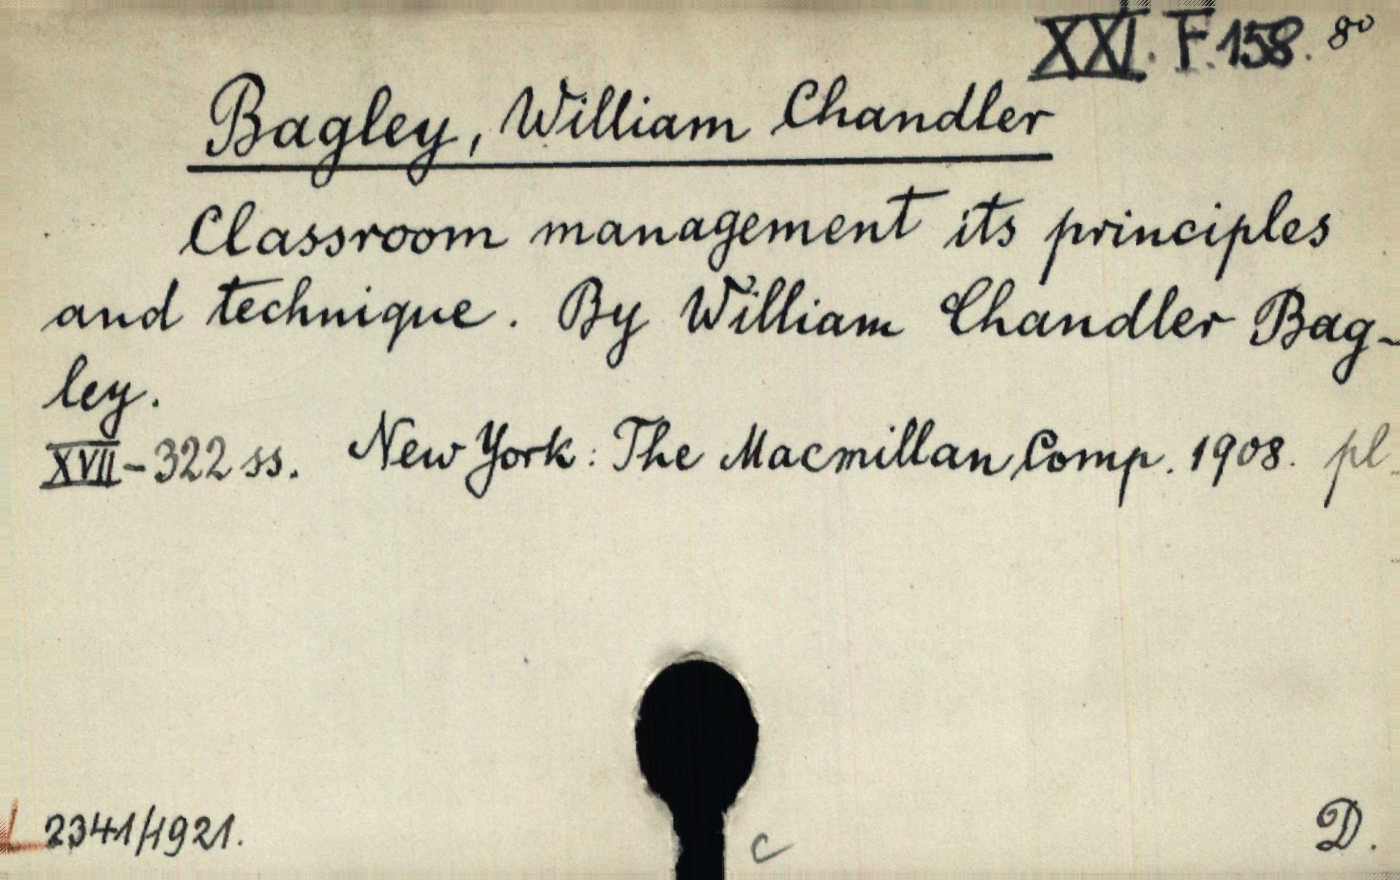 XXI. F. 158. 8º
Bagley, William Chandler
Classroom management its principles
and technique. By William Chandler Bag-
ley.
XVII-322 ss. New York: The Macmillan Comp. 1908. pl.
2341/1921.
c
D.